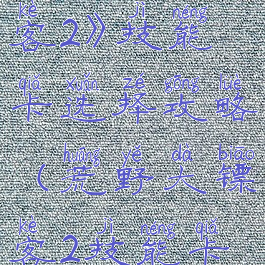 kè jì néng
客2》技能
qiǎ xuǎn zé gōng lüè
卡选择攻略
huāng yě dà biāo
(荒野大镖
kè jì néng qiǎ
客2技能卡